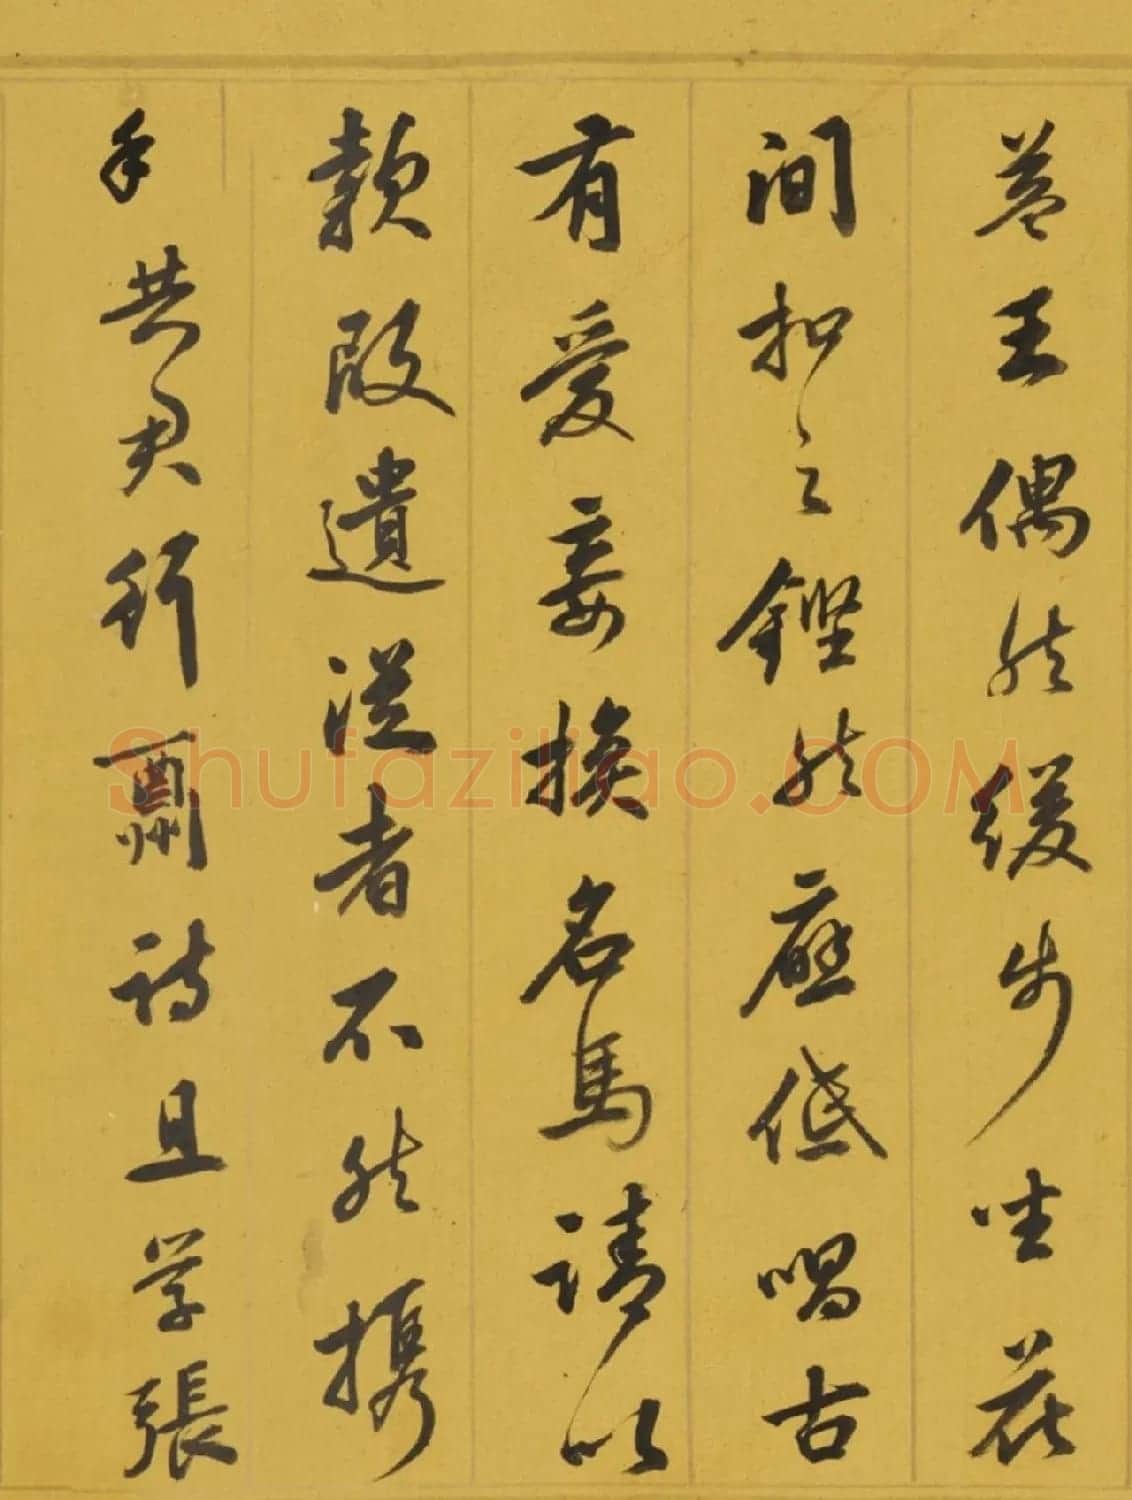 盖王偶然緩步坐花
間扣之鏗然應低唱古
有愛妾換名馬請以
款段遺從者不然携
手共君行詩且學張
Shufaziliao.COM